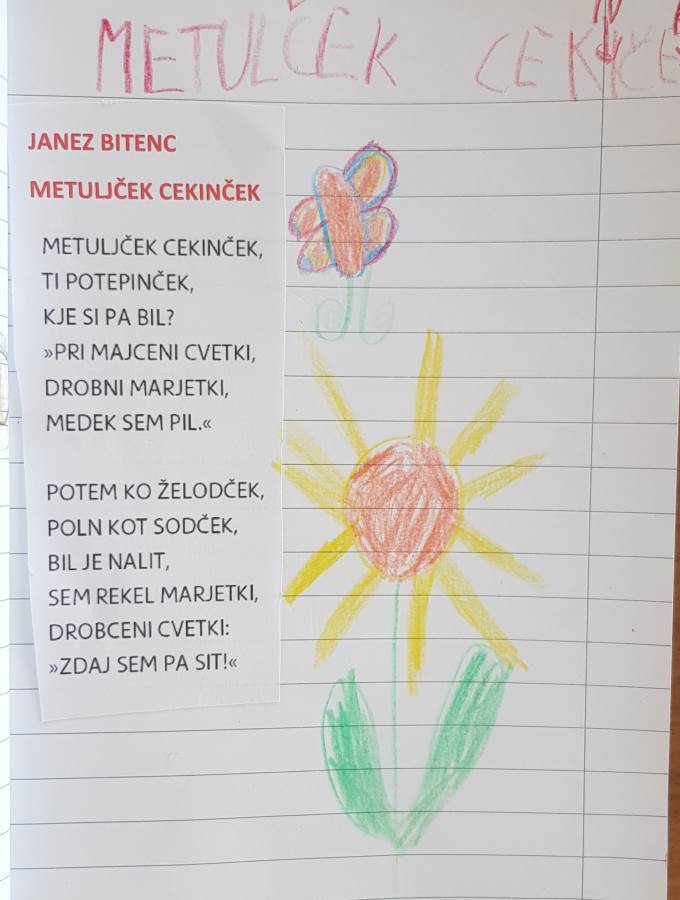 METULČEK CEKIČE
JANEZ BITENC
METULJČEK CEKINČEK
METULJČEK CEKINČEK,
TI POTEPINČEK,
KJE SI PA BIL?
»PRI MAJCENI CVETKI,
DROBNI MARJETKI,
MEDEK SEM PIL.«
POTEM KO ŽELODČEK,
POLN KOT SODČEK,
BIL JE NALIT,
SEM REKEL MARJETKI,
DROBCENI CVETKI:
»ZDAJ SEM PA SIT!«